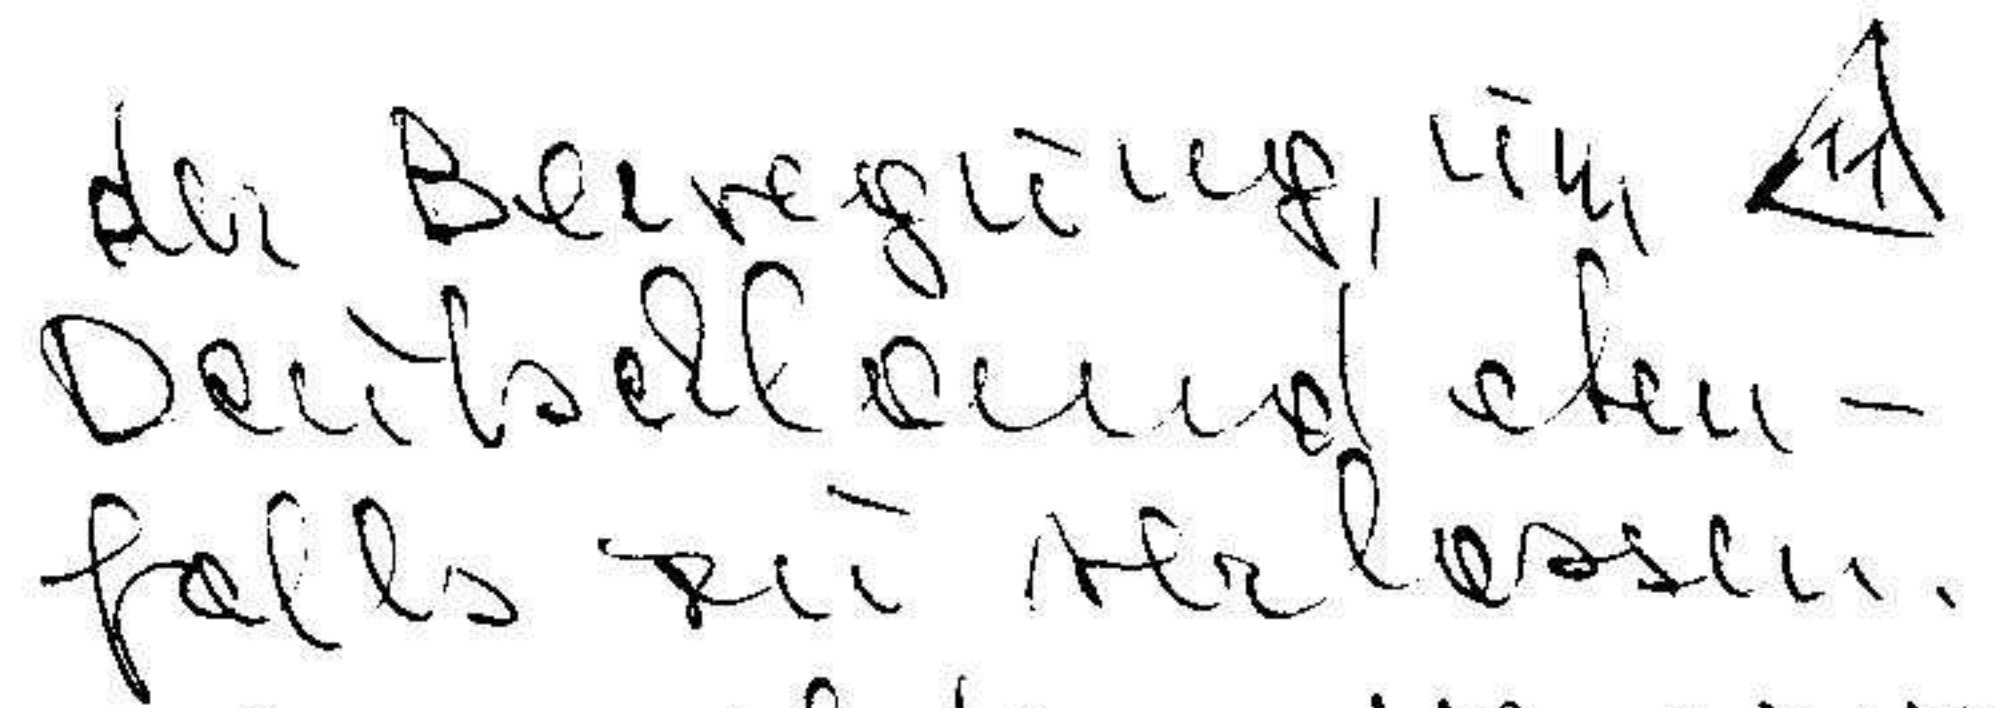 der Bewegung, um 11
Deutschland eben-
falls zu verlassen.